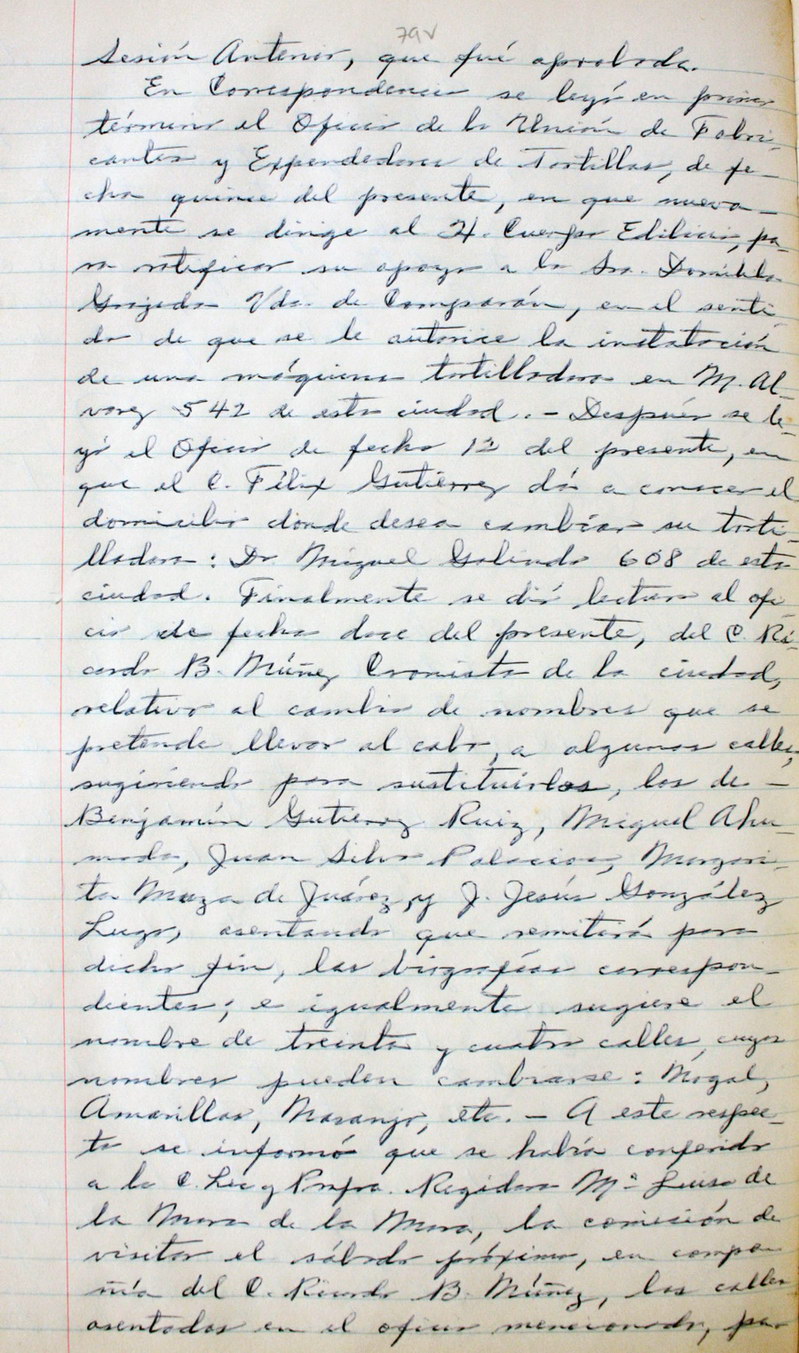 79v
Sesión Anterior, que fué aprobada.
En Correspondencia se leyó en primer
término el Oficio de la Unión de Fabri-
cantes y Expendedores de Tortillas, de fe-
cha quince del presente, en que nueva-
mente se dirige al H. Cuerpo Edilicio, pa-
ra ratificar su apoyo a la Sra. Domitila
Grageda Vda. de Comparán, en el senti
do de que se le autorice la instalación
de una máquina tortilladora en M. Al-
varez 542 de esta ciudad. - Después se le-
yó el Oficio de fecha 12 del presente, en
que el C. Félix Gutiérrez dá a conocer el
domicilio donde desea cambiar su torti-
lladora: Dr. Miguel Galindo 608 de esta
ciudad. Finalmente se dió lectura al ofi-
cio de fecha doce del presente, del C. Ri-
cardo B. Núñez Cronista de la ciudad,
relativo al cambio de nombres que se
pretende llevar al cabo, a algunas calles,
sugiriendo para sustituirlos, los de -
Benjamín Gutiérrez Ruiz, Miguel Ahu-
mada, Juan Silva Palacios, Margari-
ta Maza de Juárez, y J. Jesús González
Lugo, asentando que remitirá para
dicho fin, las biografías correspon-
dientes; e igualmente sugiere el
nombre de treinta y cuatro calles, cuyos
nombres pueden cambiarse: Nogal,
Amarillas, Naranjo, etc. - A este respec-
to se informó que se había conferido
a la C. Lic y Profra. Regidora Mª Luisa de
la Mora de la Mora, la comisión de
visitar el sábado próximo, en compa-
ñía del C. Ricardo B. Núñez, las calles
asentadas en el oficio mencionado, pa-